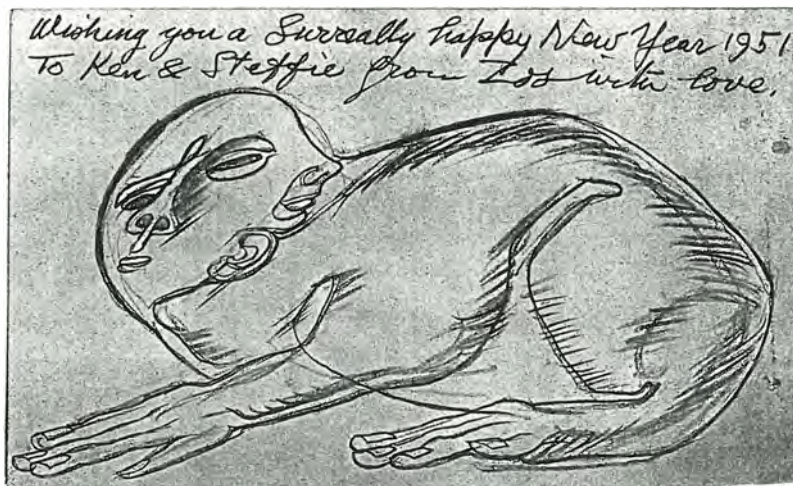 Wishing you a Surreally happy New Year 1951
To Ken & Steffie from Zos with love.